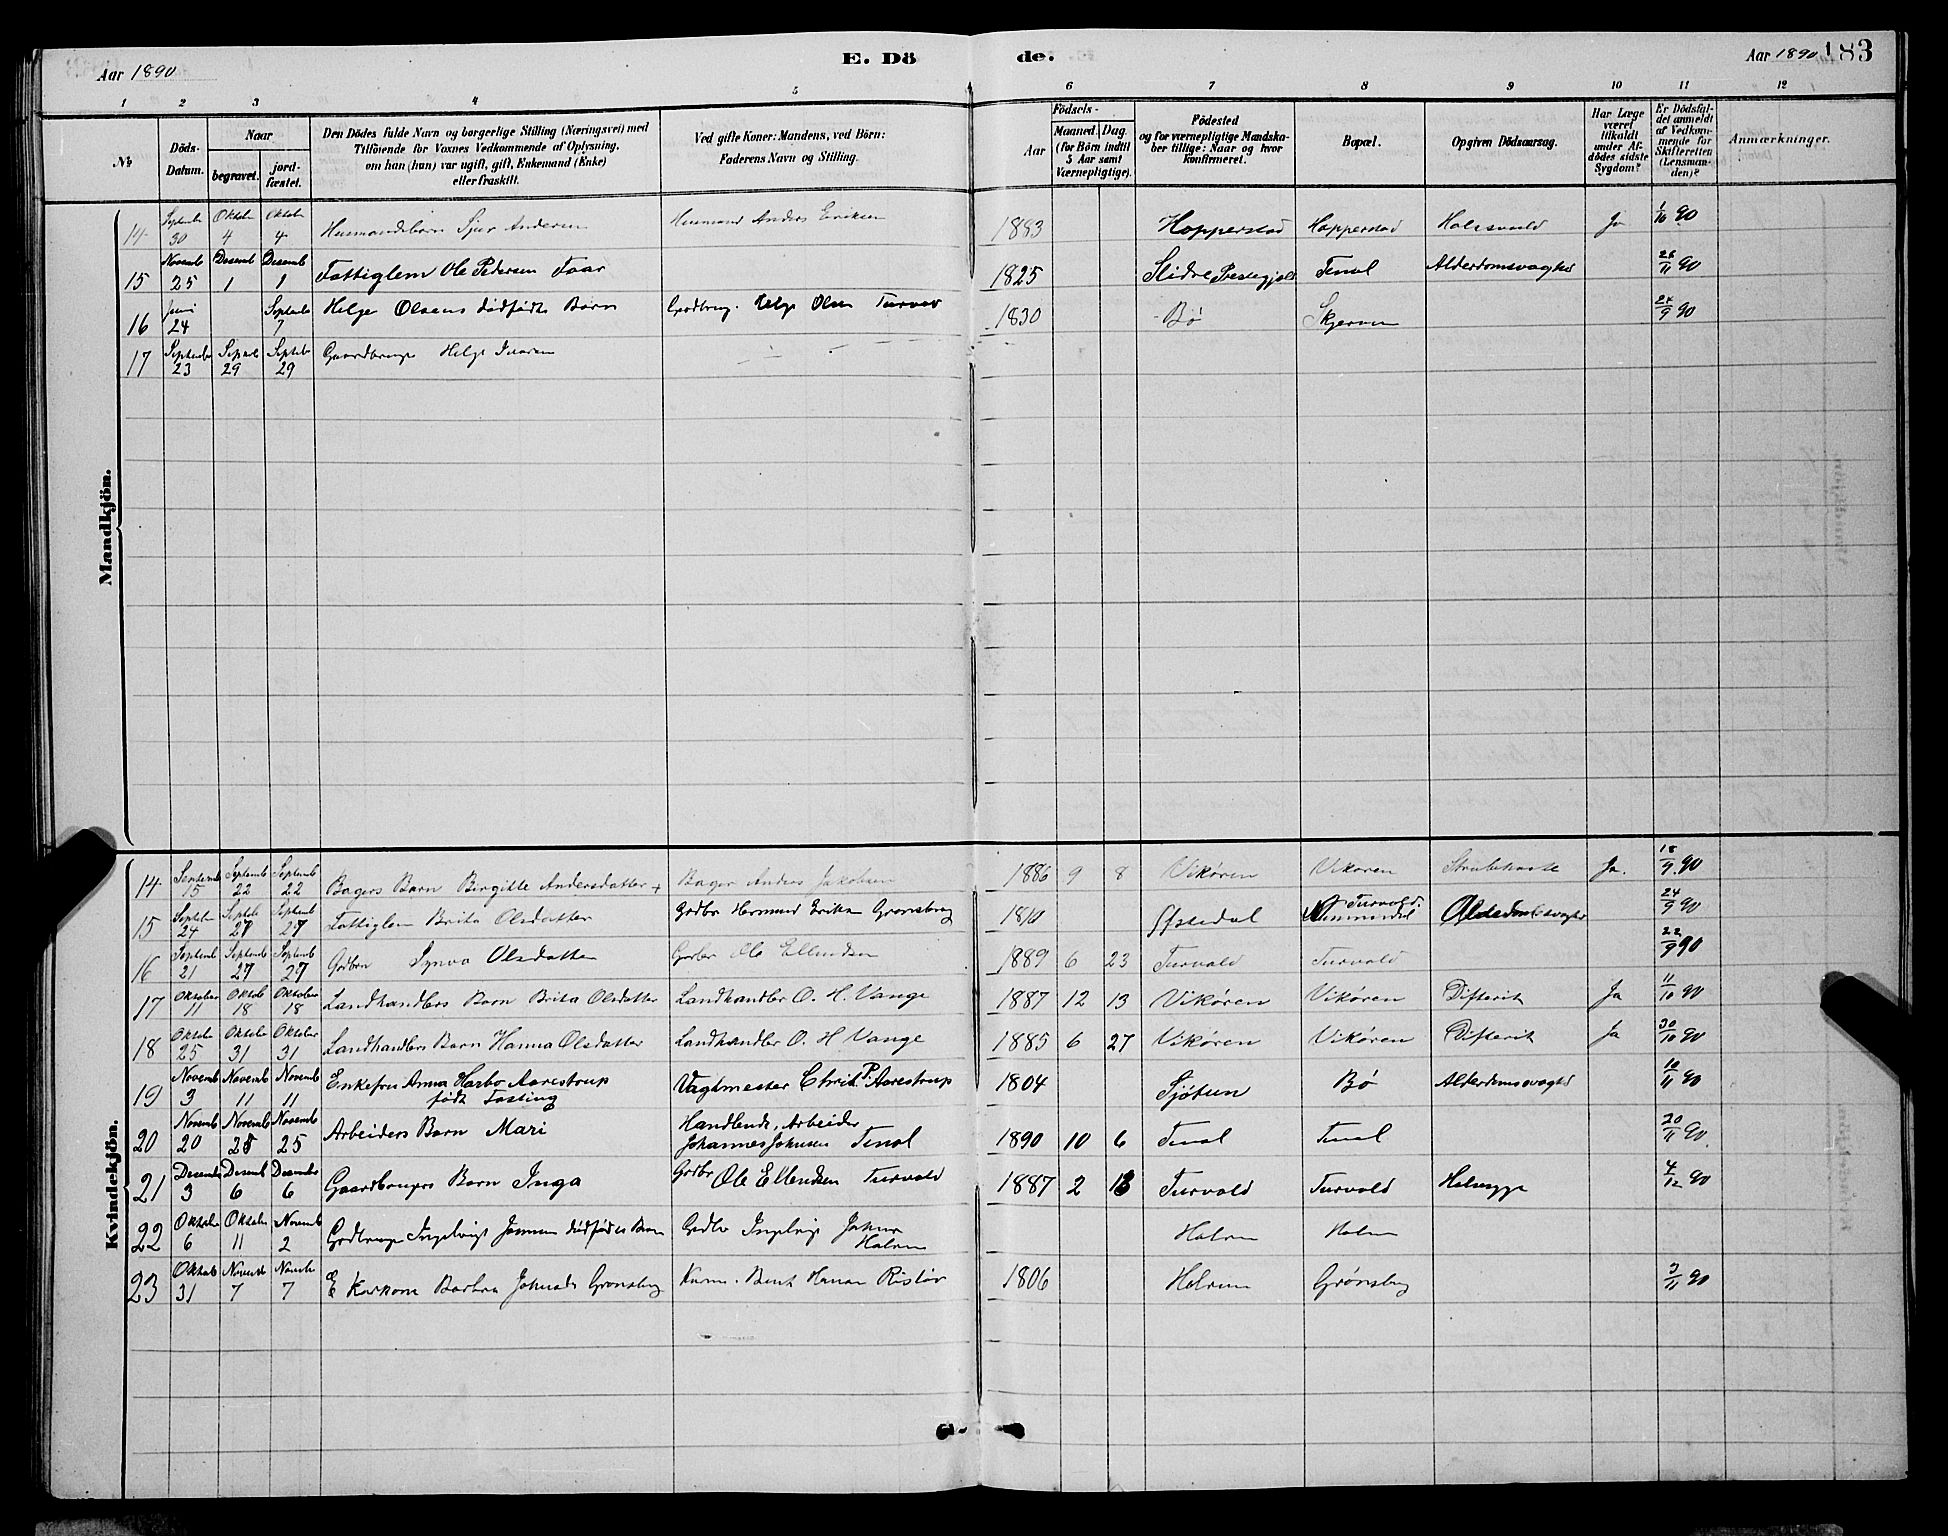 Aar 1890
E. Dö
de.
Aar 1890
183
1 2 3 4 5 6 7 8 9 10 11 12
No
Döds-
Datum.
Naar
begravet.
jord-
fæstet.
Den Dödes fulde Navn og borgerlige Stilling (Næringsvei) med
Tilföiende for Voxnes Vedkommende af Oplysning,
om han (hun) var ugift, gift, Enkemand (Enke)
eller fraskilt.
Ved gifte Koner: Mandens, ved Börn:
Faderens Navn og Stilling.
Födsels-
Aar
Maaned. Dag.
(for Börn indtil
5 Aar samt
Værnepligtige).
Födested
og for værnepligtige Mandska-
ber tillige: Naar og hvor
konfirmeret.
Bopæl.
Opgiven Dödsaarsag.
Har Læge
været
tilkaldt
under Af-
dödes sidste
Sygdom?
Er Dödsfal-
det anmeldt
af Vedkom-
mende for
Skifteretten
(Lensman-
den)?
Anmærkninger.
Mandkjön.
14 Septemb 30 Oktober 4 Oktober 4 Husmandsbarn Sjur Andersen Husmand Anders Eriksen 1883 Hopperstad Hopperstad Ja 1/10 90
15 Novemb 25 Desemb 1 Desemb 1 Fattiglem Ole Pedersen Faar 1825 Slidre Prestegjeld Tenol Alderdomsvaghed 26/11 90
16 Juni 24 Septemb 7 Helge Olsens dødfødte Barn Gardbrug. Helge Olsen Turvold 1830 Bø Skjerven 24/9 90
17 Septemb 23 Septemb 29 Septemb 29 Gaardbruger Helge Ivarsen
Kvindekjön.
14 Septemb 15 Septemb 22 Septemb 22 Bagers Barn Birgitte Andersdatter + Bager Anders Jakobsen 1886 9 8 Vikøren Vikøren Strubehoste Ja. 18/9 90
15 Septemb 24 Septb 27 Septemb 27 Fattiglem Brita Olsdatter Grdbr Hermund Eriksen Grønsberg 1810 Ofstedal Turvold Alderdomssvaghed 24/9 90
16 Septemb 21 Septemb 27 Septemb 27 Grdbrn Synva Olsdatter Grdbr Ole Ellendsen 1889 6 23 Turvold Turvold 22/9 90
17 Oktober 11 Oktob 18 Oktober 18 Landhandlers Barn Brita Olsdatter Landhandler O. H. Vange 1887 12 13 Vikøren Vikøren Difterit Ja 11/10 90
18 Oktobe 25 Oktobe 31 Oktober 31 Landhandlers Barn Hanna Olsdatter Landhandler O. H. Vange 1885 6 27 Vikøren Vikøren Difterit Ja 30/10 90
19 Novemb 3 Novemb 11 Novemb 11 Enkefru Anna Harbo Aarestrup
født Fasting
Vagtmester Christ. P. Aarestrup 1804 Sjøtun Bø Alderdomssvaghed 10/11 90
20 Novemb 20 Novemb 25 Novemb 25 Arbeiders Barn Mari Handlende, Arbeider
Johannes Johnsen Tenol 1890 10 6 Tenol Tenol 20/11 90.
21 Desembe 3 Desemb 6 Desembe 6 Gaardbrugers Barn Inga Grdbr Ole Ellendsen Turvold 1887 2 13 Turvold Turvold 4/12 90
22 Oktobe 6 Oktobe 11 Novemb 2 Grdbruger Ingebrigt Johnsens dødfødte Barn Grdbr Ingebrigt Johnsen
Holum
Holum Holum
23 Oktob 31 Novemb 7 Novemb 7 Barbra Johnsd. Grønsberg Bent Hansen 1806 Holum Grønsberg 3/11 90